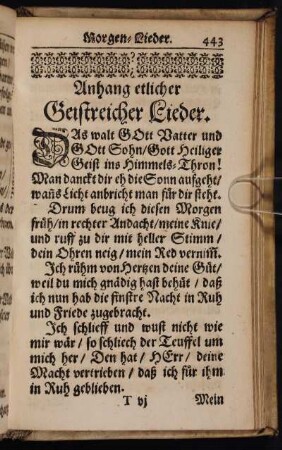 Morgen-Lieder. 443
Anhang etlicher
Geistreicher Lieder.
DAs walt GOtt Vatter und
GOtt Sohn/Gott Heiliger
Geist ins Himmels-Thron!
Man danckt dir eh die Sonn aufgeht/
wañs Licht anbricht man für dir steht.
Drum beug ich diesen Morgen
früh/in rechter Andacht/meine Knie/
und ruff zu dir mit heller Stimm/
dein Ohren neig/mein Red vernim̃.
Ich rühm von Hertzen deine Güt/
weil du mich gnädig hast behüt/ daß
ich nun hab die finstre Nacht in Ruh
und Friede zugebracht.
Ich schlieff und wust nicht wie
mir wär/ so schliech der Teuffel um
mich her/ Den hat/ HErr/ deine
Macht vertrieben/ daß ich für ihm
in Ruh geblieben.
T vj Mein